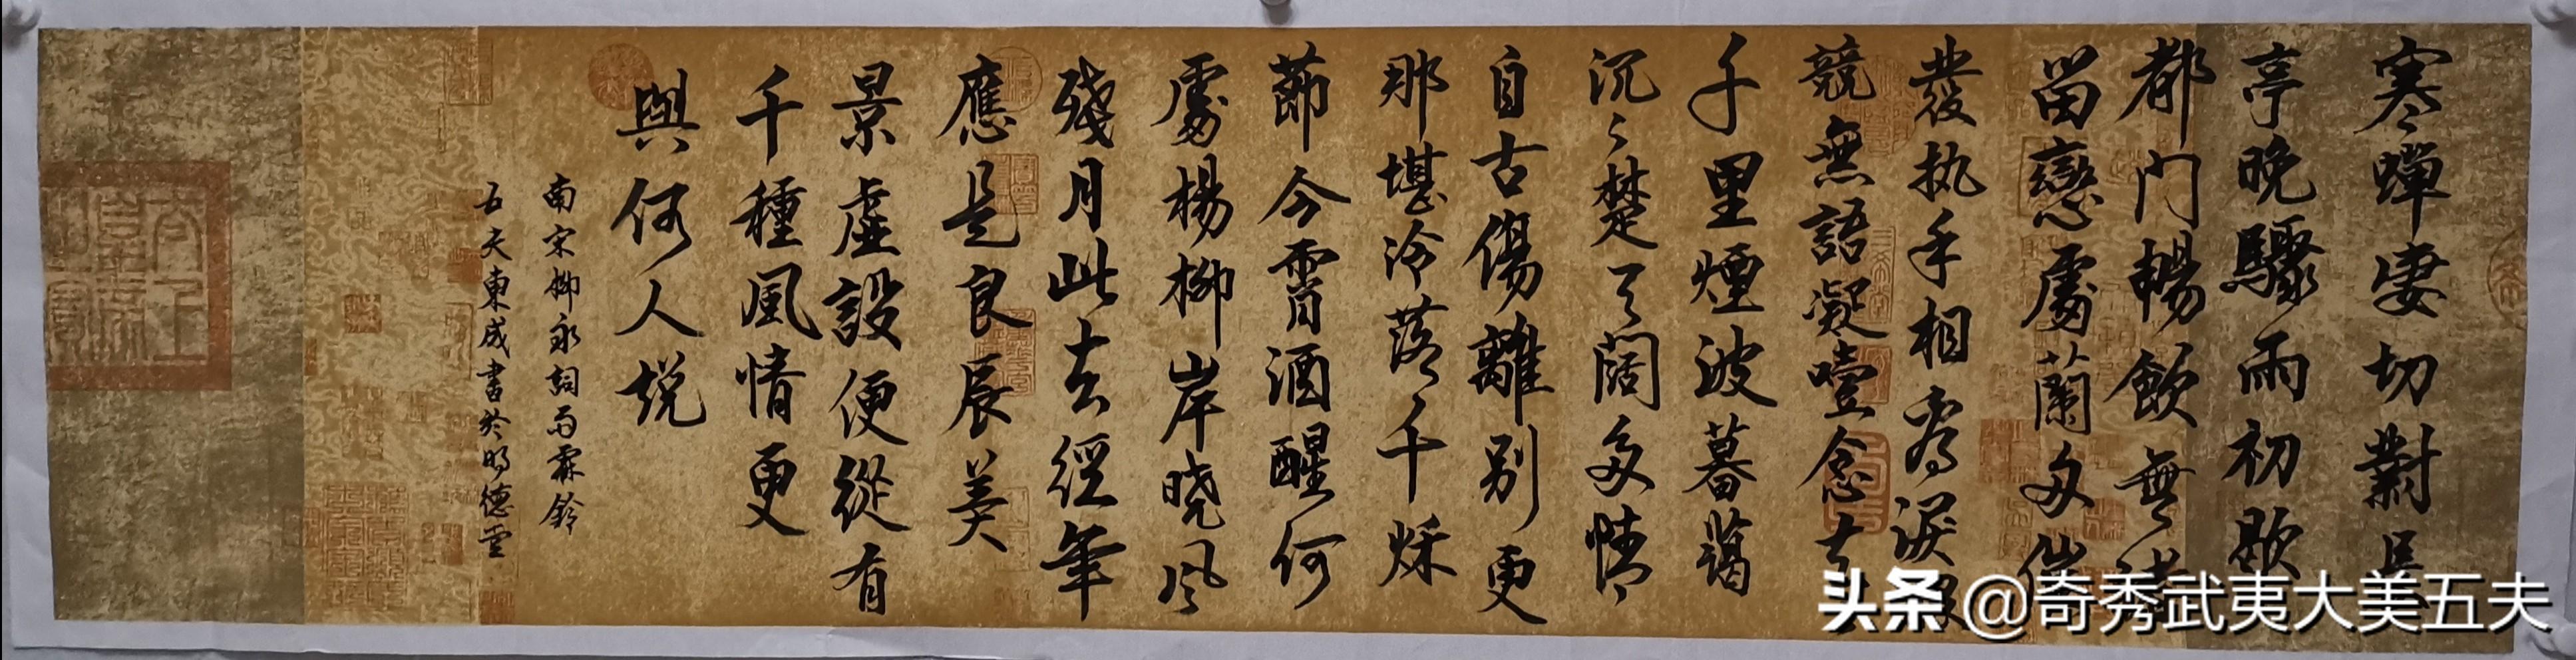 寒蟬凄切對長
亭晚驟雨初歇
都門暢飲無緒
留戀處蘭舟催
發执手相看淚眼
競無語凝噎念去
千里煙波暮藹
沉々楚天闊多情
自古傷離別更
那堪冷落千秌
節今宵酒醒何
處楊柳岸曉风
殘月此去經年
應是良辰美
景虛設便從有
千種風情更
與何人説
南宋柳永詞雨霖鈴
五夫東成書於明德
头条 @奇秀武夷大美五夫